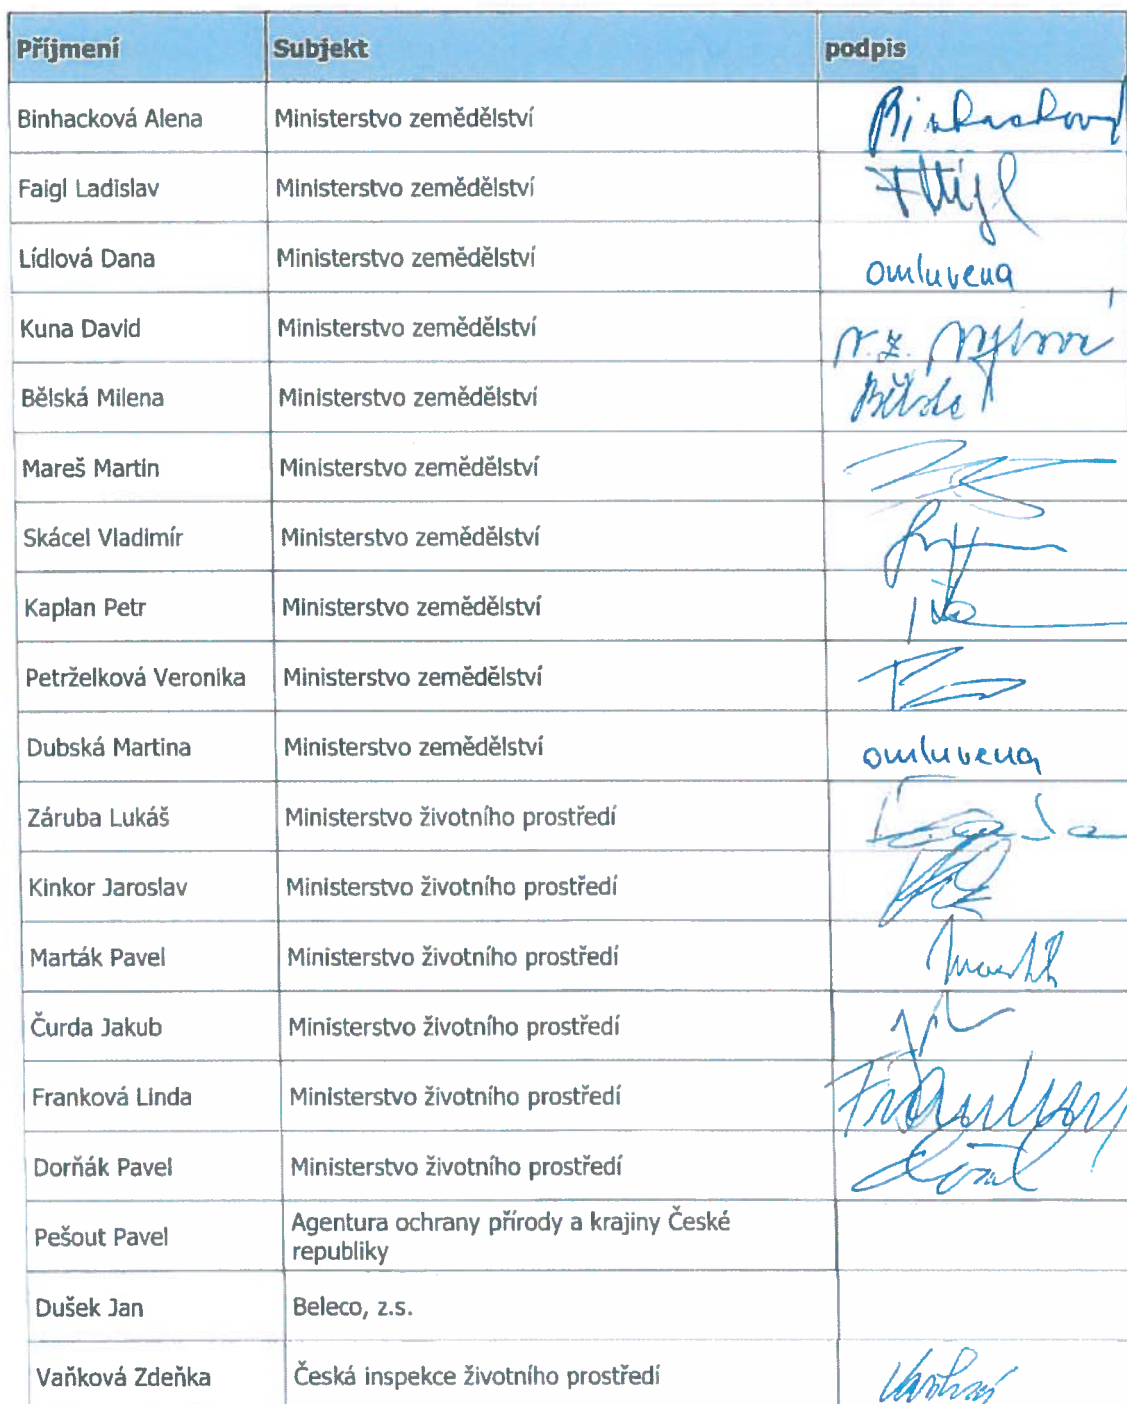 Příjmení Subjekt podpis
Binhacková Alena Ministerstvo zemědělství Binhacková
Faigl Ladislav Ministerstvo zemědělství
Lídlová Dana Ministerstvo zemědělství omluvena
Kuna David Ministerstvo zemědělství v.z.
Bělská Milena Ministerstvo zemědělství
Mareš Martin Ministerstvo zemědělství
Skácel Vladimír Ministerstvo zemědělství
Kaplan Petr Ministerstvo zemědělství
Petrželková Veronika Ministerstvo zemědělství
Dubská Martina Ministerstvo zemědělství omluvena
Záruba Lukáš Ministerstvo životního prostředí
Kinkor Jaroslav Ministerstvo životního prostředí
Marták Pavel Ministerstvo životního prostředí
Čurda Jakub Ministerstvo životního prostředí
Franková Linda Ministerstvo životního prostředí
Dorňák Pavel Ministerstvo životního prostředí
Pešout Pavel Agentura ochrany přírody a krajiny České
republiky
Dušek Jan Beleco, z.s.
Vaňková Zdeňka Česká inspekce životního prostředí